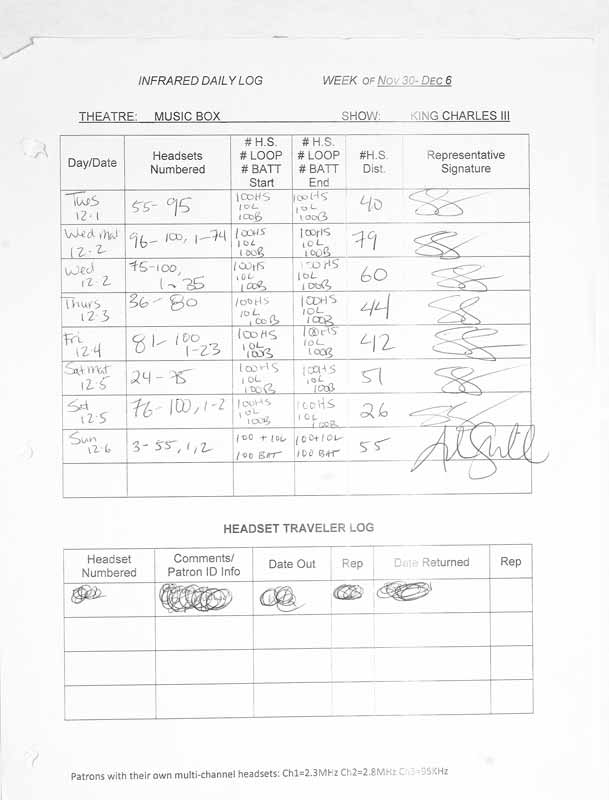 INFRARED DAILY LOG WEEK OF NOV 30- DEC 6
THEATRE: MUSIC BOX SHOW: KING CHARLES III
Day/Date Headsets Numbered # H.S. # LOOP # BATT Start # H.S. # LOOP # BATT End #H.S. Dist. Representative Signature
Tues 12.1 55-95 100HS 10L 100B 100HS 10L 100B 40
Wed mat 12.2 96-100, 1-74 100HS 10L 100B 100HS 10L 100B 79
Wed 12.2 75-100, 1-35 100HS 10L 100B 100HS 10L 100B 60
Thurs 12.3 36-80 100HS 10L 100B 100HS 10L 100B 44
Fri 12.4 81-100 1-23 100HS 10L 100B 100HS 10L 100B 42
Sat mat 12.5 24-75 100HS 10L 100B 100HS 10L 100B 51
Sat 12.5 76-100, 1-2 100HS 10L 100B 100HS 10L 100B 26
Sun 12.6 3-55, 1, 2 100 + 10L 100 BAT 100+10L 100 BAT 55
HEADSET TRAVELER LOG
Headset Numbered Comments/ Patron ID Info Date Out Rep Date Returned Rep
Patrons with their own multi-channel headsets: Ch1=2.3MHz Ch2=2.8MHz Ch3=95KHz